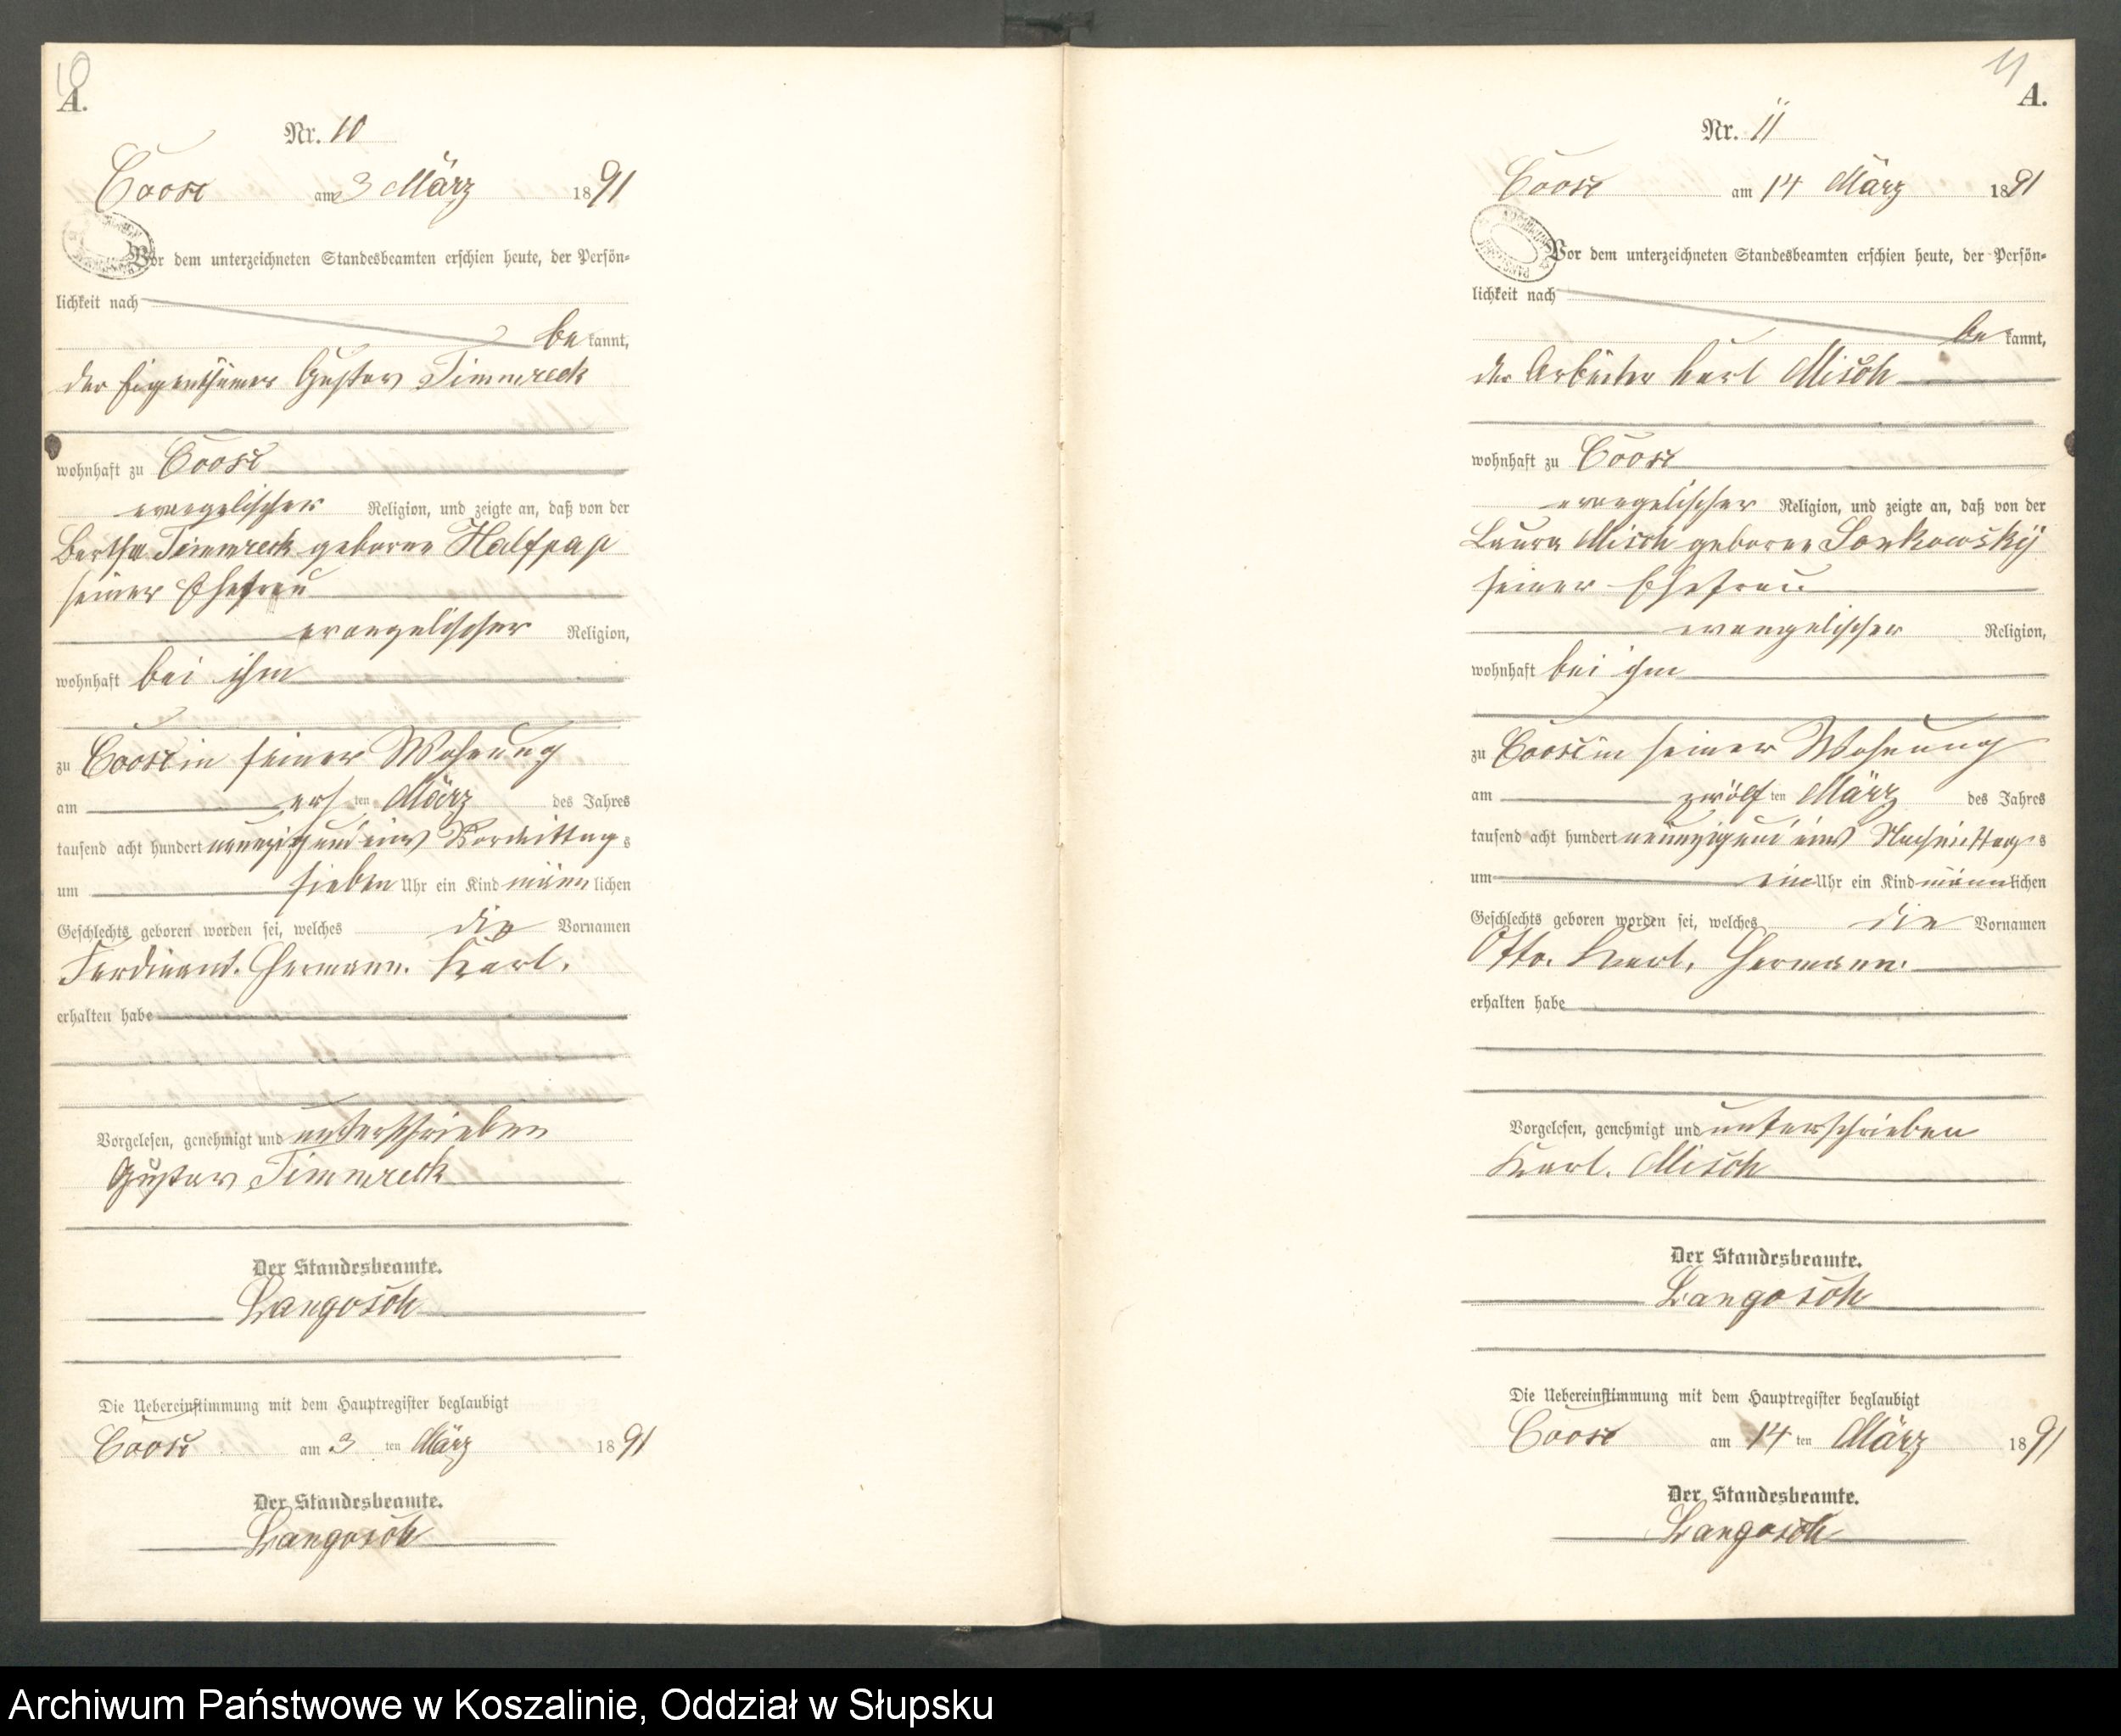 10
A.
Nr. 10
Coose am 3 März 1891
Vor dem unterzeichneten Standesbeamten erschien heute, der Persön-
lichkeit nach
be kannt,
der Eigenthümer Gustav Timmreck
wohnhaft zu Coose
evangelischer Religion, und zeigte an, daß von der
Bertha Timmreck geborne Halfpap
seiner Ehefrau
evangelischer Religion,
wohnhaft bei ihm
zu Coose in seiner Wohnung
am ersten März des Jahres
tausend acht hundert neunzig und eins Vormittags
um sieben Uhr ein Kind männlichen
Geschlechts geboren worden sei, welches die Vornamen
Ferdinand. Hermann. Karl.
erhalten habe
Vorgelesen, genehmigt und unterschrieben
Gustav Timmreck
Der Standesbeamte.
Langosch
Die Uebereinstimmung mit dem Hauptregister beglaubigt
Coose am 3 ten März 1891
Der Standesbeamte.
Langosch
11
A.
Nr. 11
Coose am 14 März 1891
Vor dem unterzeichneten Standesbeamten erschien heute, der Persön-
lichkeit nach
be kannt,
der Arbeiter Karl Misch
wohnhaft zu Coose
evangelischer Religion, und zeigte an, daß von der
Laura Misch geborne
seiner Ehefrau
evangelischer Religion,
wohnhaft bei ihm
zu Coose in seiner Wohnung
am zwölften März des Jahres
tausend acht hundert neunzig und eins Nachmittags
um ein Uhr ein Kind männlichen
Geschlechts geboren worden sei, welches die Vornamen
Otto. Karl. Hermann.
erhalten habe
Vorgelesen, genehmigt und unterschrieben
Karl. Misch
Der Standesbeamte.
Langosch
Die Uebereinstimmung mit dem Hauptregister beglaubigt
Coose am 14 ten März 1891
Der Standesbeamte.
Langosch
Archiwum Państwowe w Koszalinie, Oddział w Słupsku